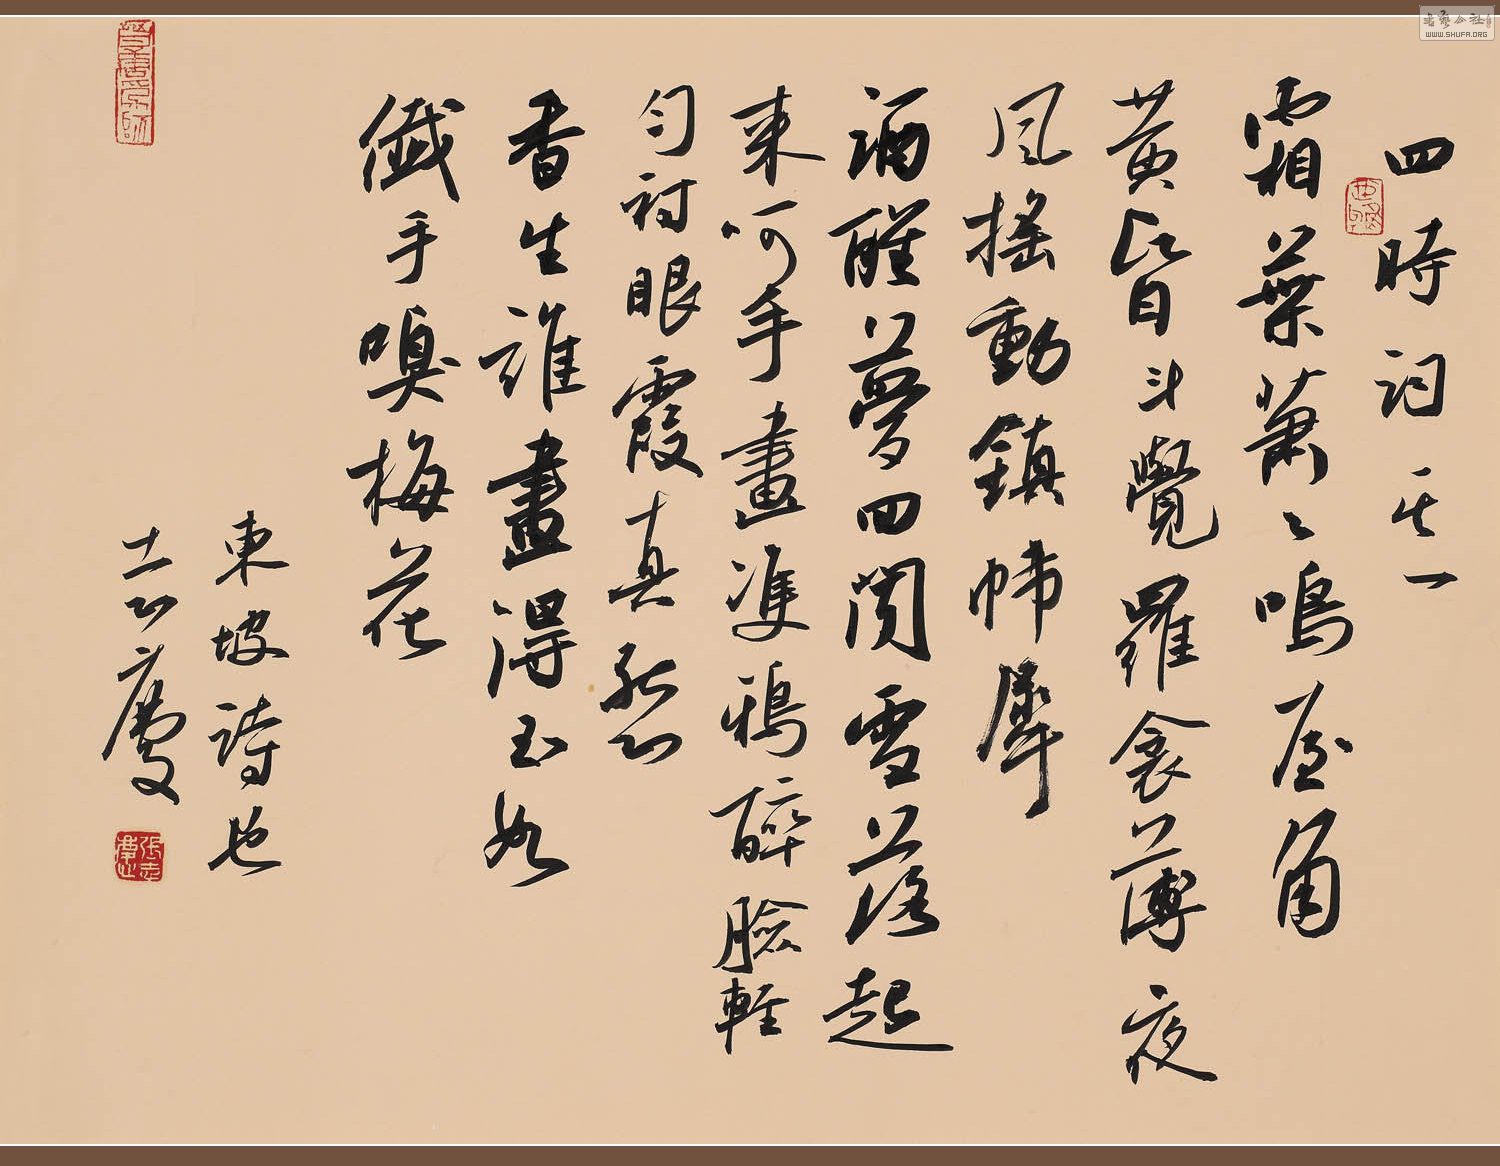 四時詞其一
霜葉蕭〻鳴屋角
黃昏斗覺羅衾薄夜
風搖動鎮幃犀
酒醒夢回聞雪落起
來呵手畫雙鴉醉臉輕
勻衬眼霞真態
香生誰畫得玉如
纖手嗅梅花
東坡詩也
志慶
书艺公社
WWW.SHUFA.ORG